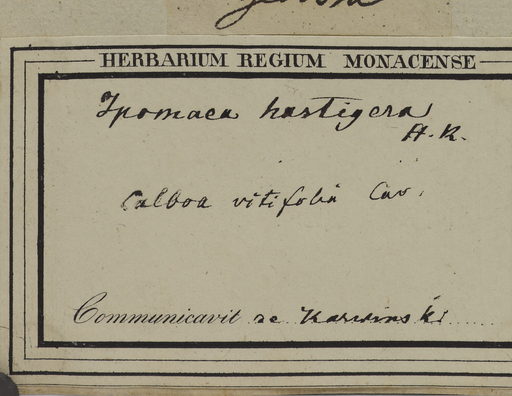 HERBARIUM REGIUM MONACENSE
Ipomaea hastigera
H. K.
Calboa vitifolia Cav.
Communicavit de Karwinski